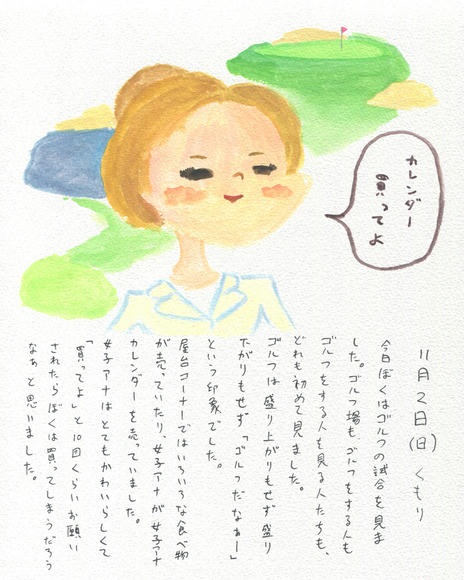 カレンダー
買ってよ
11月2日(日)くもり
今日ぼくはゴルフの試合を見ま
した。ゴルフ場も、ゴルフをする人も
ゴルフをする人を見る人たちも、
どれも初めて見ました。
ゴルフは盛り上がりもせず盛り
下がりもせず「ゴルフだなぁー」
という印象でした。
屋台コーナーではいろいろな食べ物
が売っていたり、女子アナが女子アナ
カレンダーを売っていました。
女子アナはとてもかわいらしくて
「買ってよ」と10回くらいお願い
されたらぼくは買ってしまうだろう
なぁと思いました。